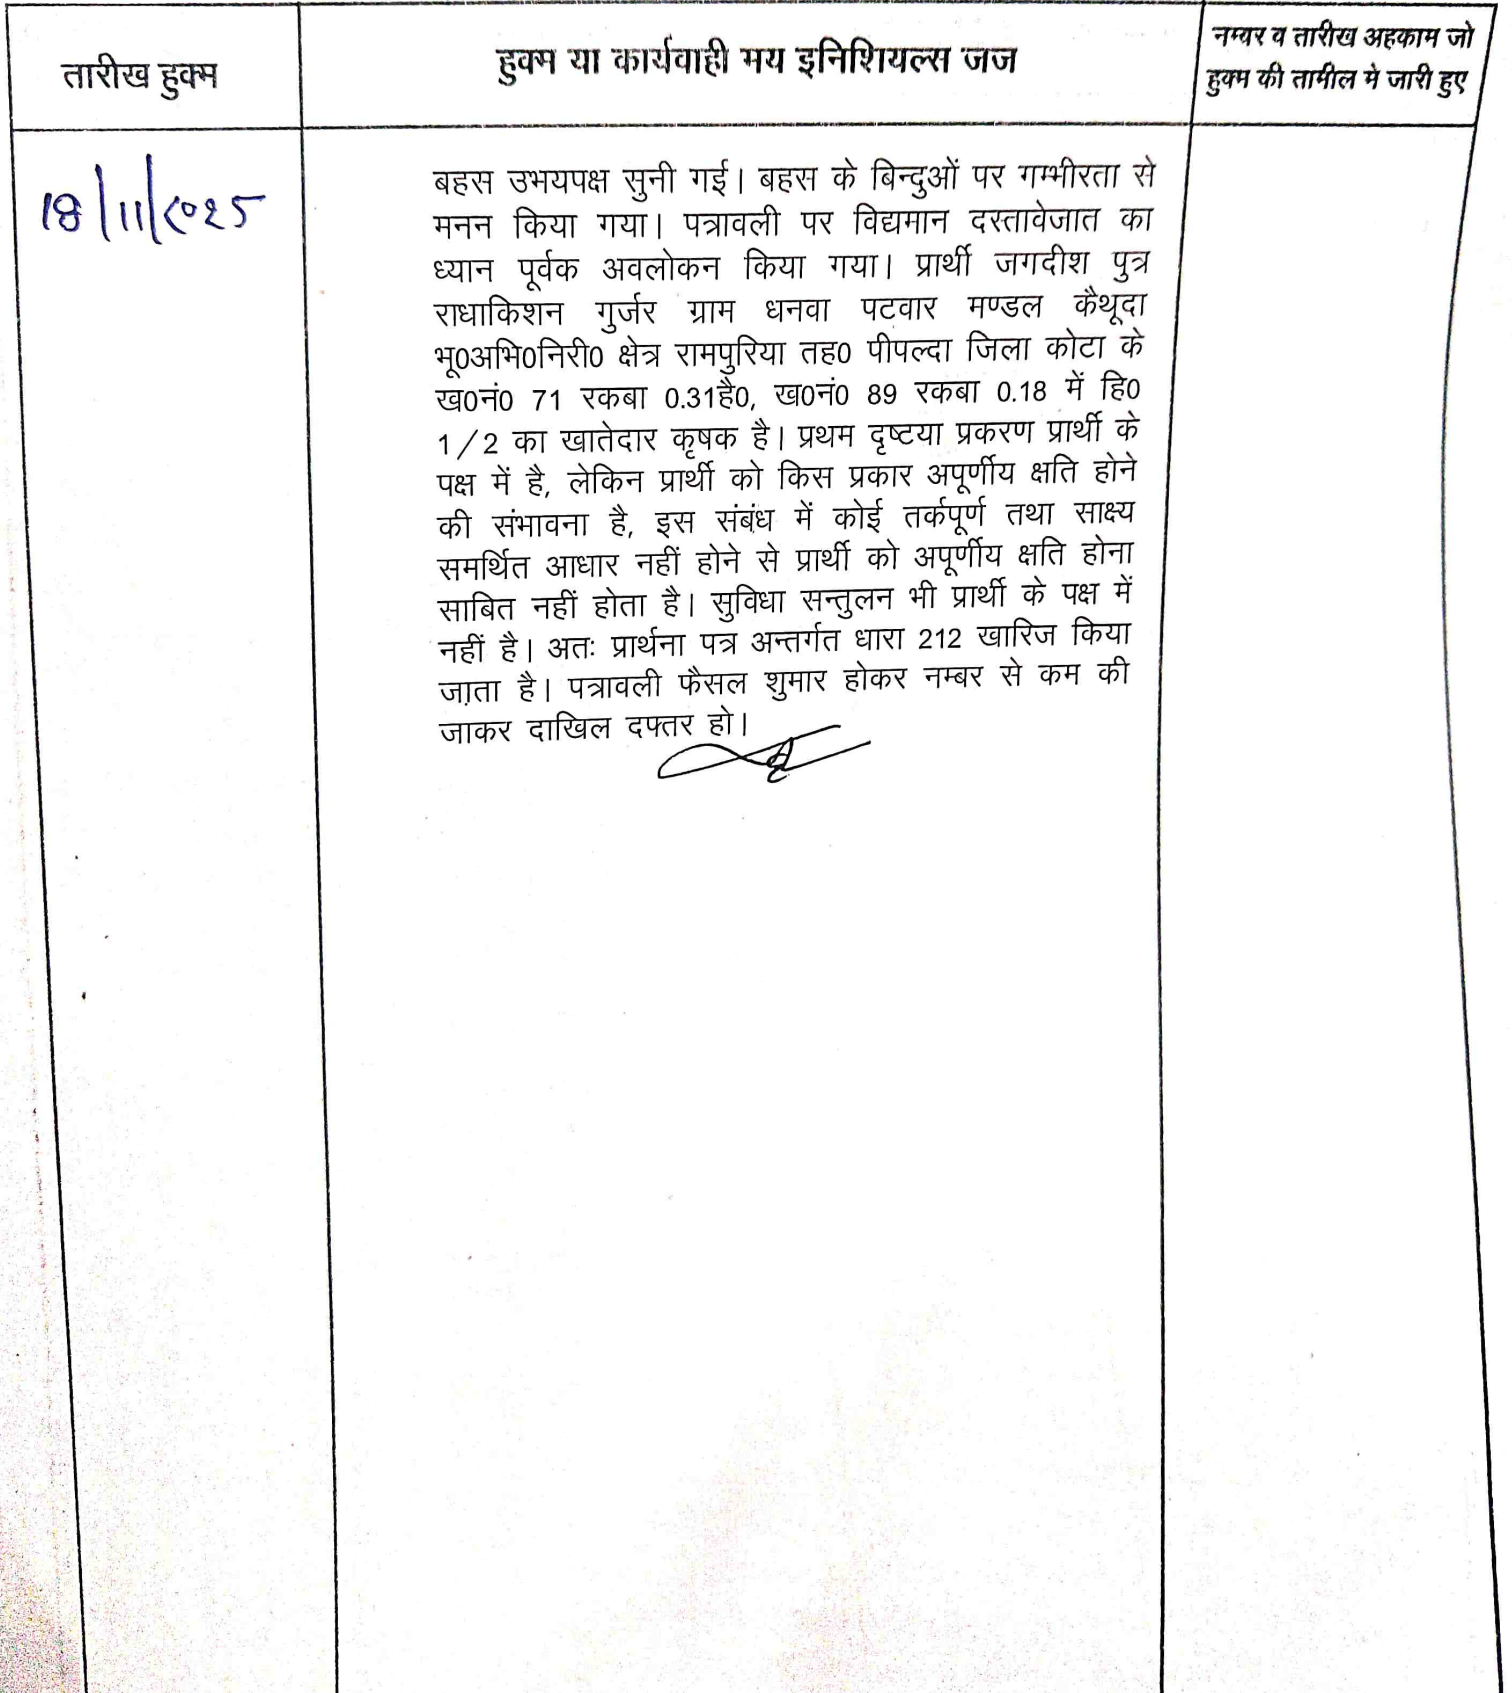 तारीख हुक्म
हुक्म या कार्यवाही मय इनिशियल्स जज
नम्वर व तारीख अहकाम जो
हुक्म की तामील मे जारी हुए
18/11/२०२५
बहस उभयपक्ष सुनी गई। बहस के बिन्दुओं पर गम्भीरता से
मनन किया गया। पत्रावली पर विद्यमान दस्तावेजात का
ध्यान पूर्वक अवलोकन किया गया। प्रार्थी जगदीश पुत्र
राधाकिशन गुर्जर ग्राम धनवा पटवार मण्डल कैथूदा
भू0अभि0निरी0 क्षेत्र रामपुरिया तह0 पीपल्दा जिला कोटा के
ख0नं0 71 रकबा 0.31है0, ख0नं0 89 रकबा 0.18 में हि0
1/2 का खातेदार कृषक है। प्रथम दृष्टया प्रकरण प्रार्थी के
पक्ष में है, लेकिन प्रार्थी को किस प्रकार अपूर्णीय क्षति होने
की संभावना है, इस संबंध में कोई तर्कपूर्ण तथा साक्ष्य
समर्थित आधार नहीं होने से प्रार्थी को अपूर्णीय क्षति होना
साबित नहीं होता है। सुविधा सन्तुलन भी प्रार्थी के पक्ष में
नहीं है। अतः प्रार्थना पत्र अन्तर्गत धारा 212 खारिज किया
जाता है। पत्रावली फैसल शुमार होकर नम्बर से कम की
जाकर दाखिल दफ्तर हो।